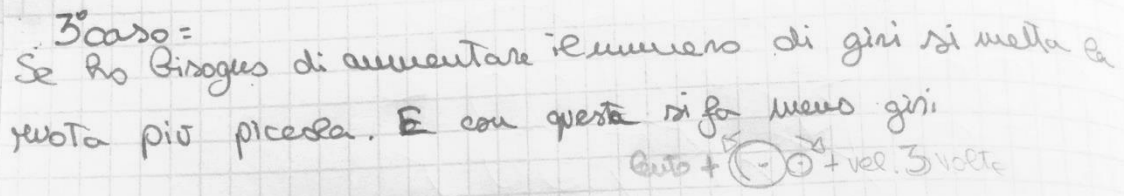 3° caso =
Se ho bisogno di aumentare il numero di giri si metta la
ruota più piccola. E con questa si fa meno giri
lento + - + + vel. 3 volte